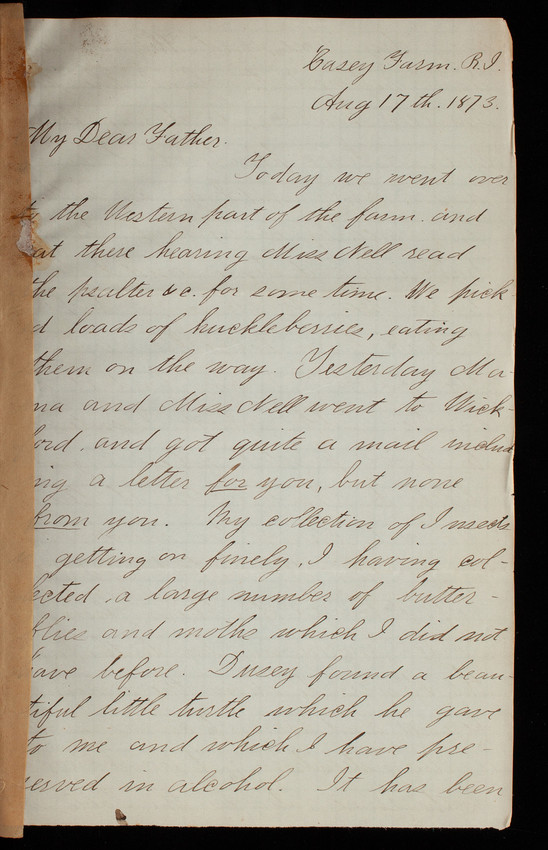 Casey Farm. R.I.
Aug 17th. 1873.
My Dear Father.
Today we went over
to the Western part of the farm. and
sat there hearing Miss Nell read
the psalter &c. for some time. We pick-
d loads of huckleberries, eating
them on the way. Yesterday Ma-
ma and Miss Nell went to Wick-
ford. and got quite a mail includ
ing a letter for you, but none
from you. My collection of Insects
getting on finely, I having col-
lected a large number of butter-
flies and moths which I did not
have before. Dusey found a beau-
tiful little turtle which he gave
to me and which I have pre-
served in alcohol. It has been